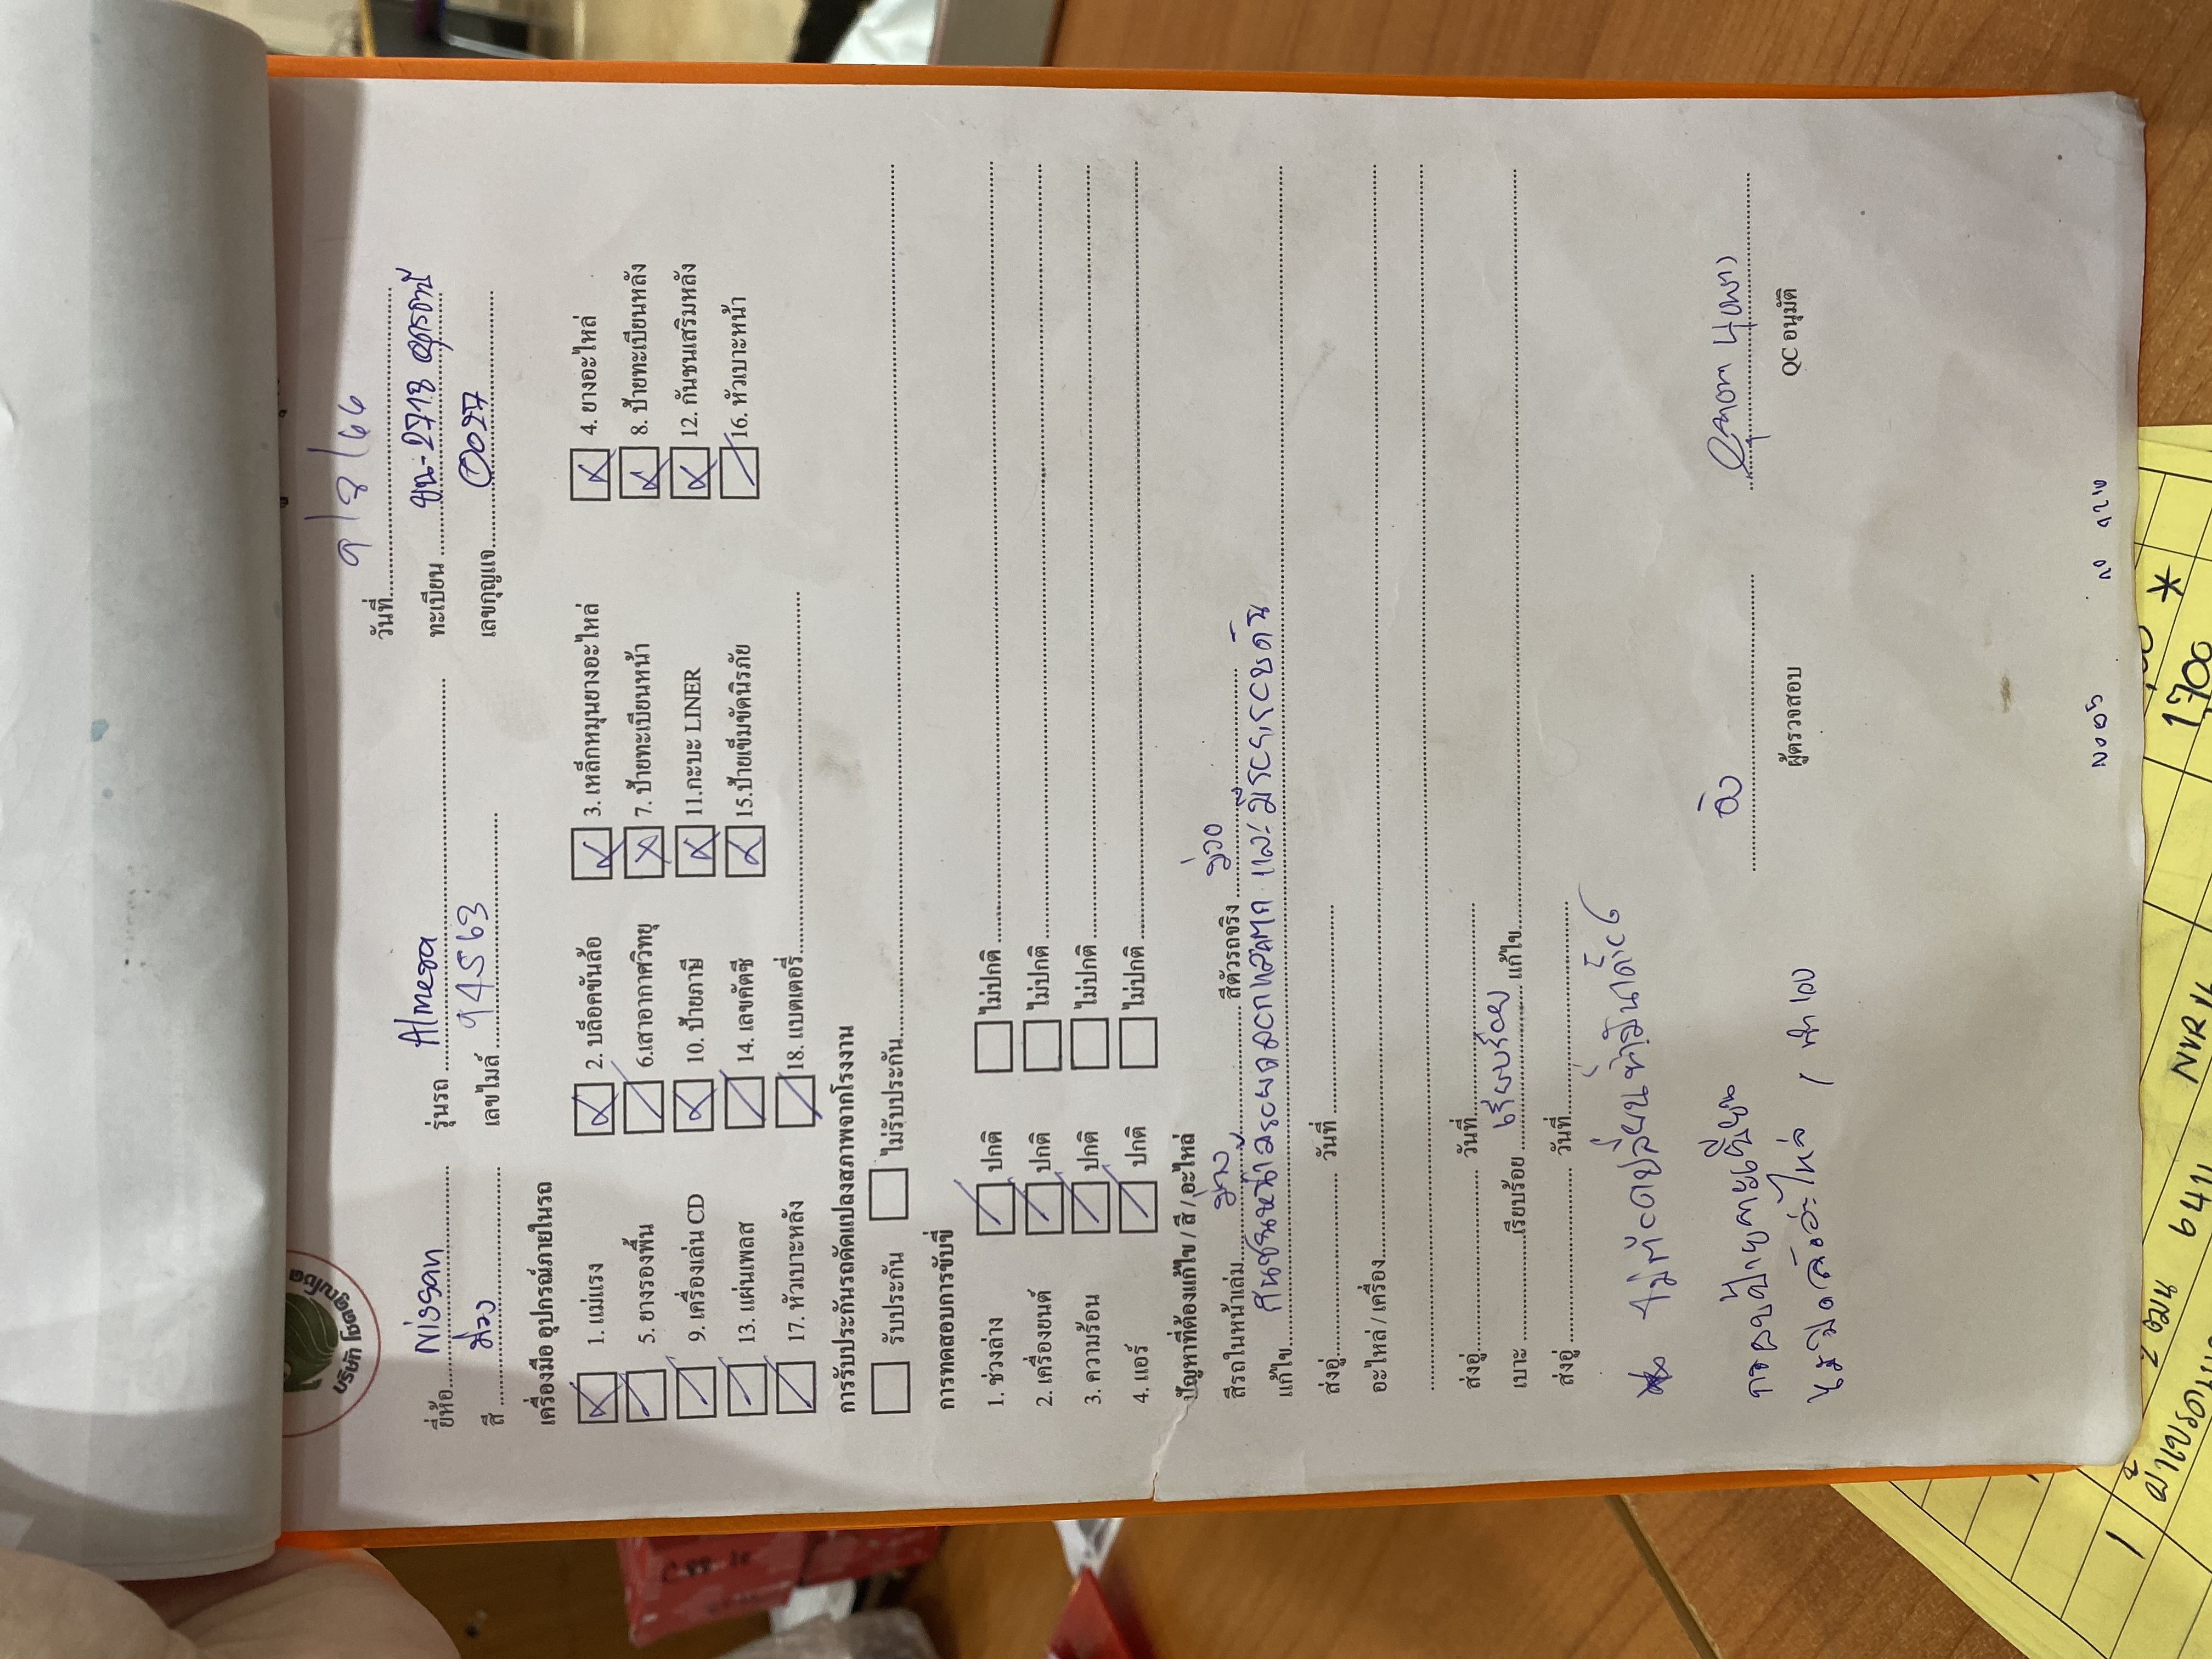 บริษัท โชคคูณโชค
วันที่ 9/8/66
ยี่ห้อ Nissan รุ่นรถ Almera ทะเบียน ขน-2718 อุดรธานี
สี ม่วง เลขไมล์ 94563 เลขกุญแจ 0027
เครื่องมือ อุปกรณ์ภายในรถ
1. แม่แรง 2. บล็อคขันล้อ 3. เหล็กหมุนยางอะไหล่ 4. ยางอะไหล่
5. ยางรองพื้น 6.เสาอากาศวิทยุ 7. ป้ายทะเบียนหน้า 8. ป้ายทะเบียนหลัง
9. เครื่องเล่น CD 10. ป้ายภาษี 11.กะบะ LINER 12. กันชนเสริมหลัง
13. แผ่นเพลส 14. เลขคัตซี 15.ป้ายเข็มขัดนิรภัย 16. หัวเบาะหน้า
17. หัวเบาะหลัง 18. แบตเตอรี่
การรับประกันรถดัดแปลงสภาพจากโรงงาน
รับประกัน ไม่รับประกัน
การทดสอบการขับขี่
1. ช่วงล่าง ปกติ ไม่ปกติ
2. เครื่องยนต์ ปกติ ไม่ปกติ
3. ความร้อน ปกติ ไม่ปกติ
4. แอร์ ปกติ ไม่ปกติ
ปัญหาที่ต้องแก้ไข / สี / อะไหล่
สีรถในหน้าเล่ม ม่วง สีตัวรถจริง ม่วง
แก้ไข กันชนหน้า และมี
ส่งอู่ วันที่
อะไหล่ / เครื่อง
ส่งอู่ วันที่
เบาะ เรียบร้อย เรียบร้อย แก้ไข
ส่งอู่ วันที่
กรอบป้ายทะเบียน
ผู้ตรวจสอบ QC อนุมัติ
1700 *
1
2
6411